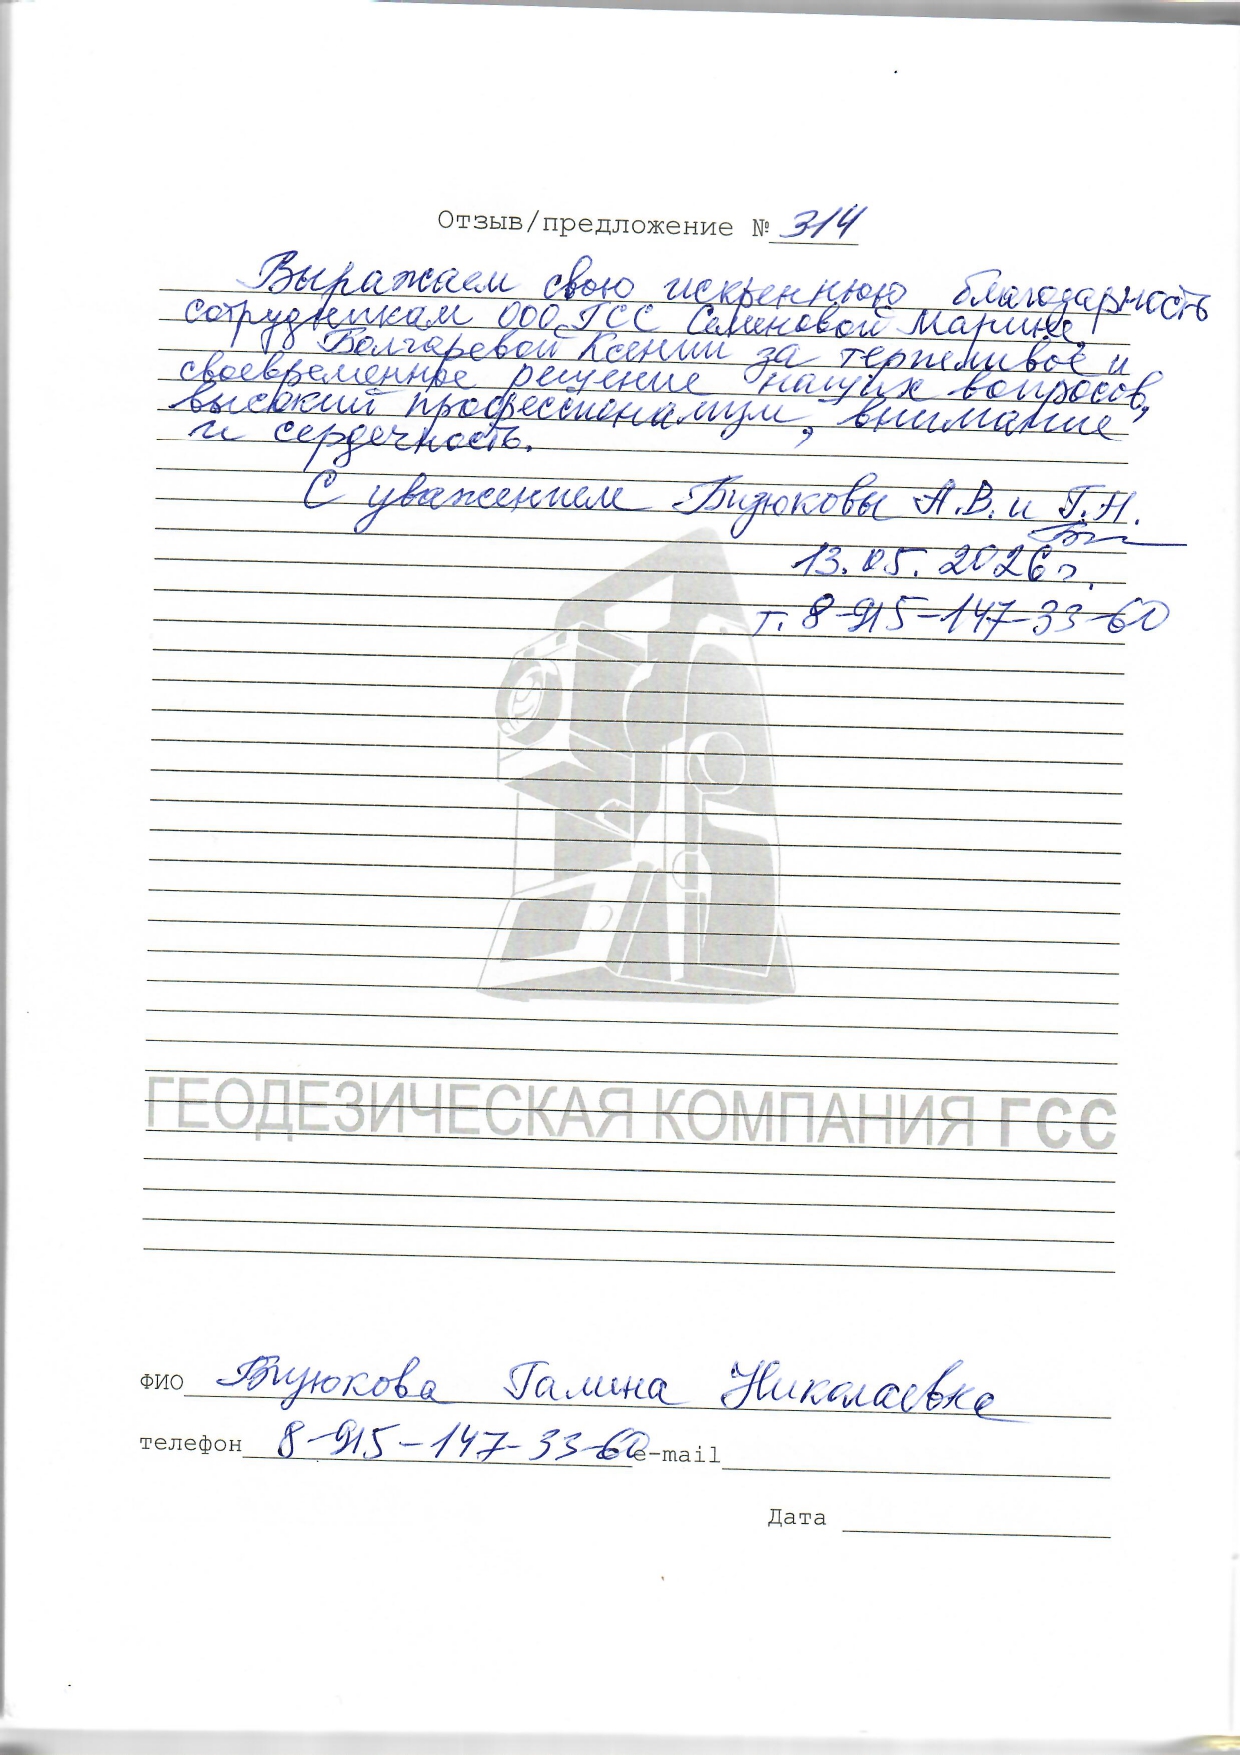 Отзыв/предложение № 314
Выражаем свою искреннюю благодарность
сотрудникам ООО ГСС Семеновой Марине,
Болгаревой Ксении за терпеливое и
своевременное решение наших вопросов,
высокий профессионализм, внимание
и сердечность.
С уважением Бизюковы А.В. и Г.Н.
13.05.2026г.
т. 8-915-147-33-60
ГЕОДЕЗИЧЕСКАЯ КОМПАНИЯ ГСС
ФИО Бизюкова Галина Николаевна
телефон 8-915-147-33-60 e-mail
Дата